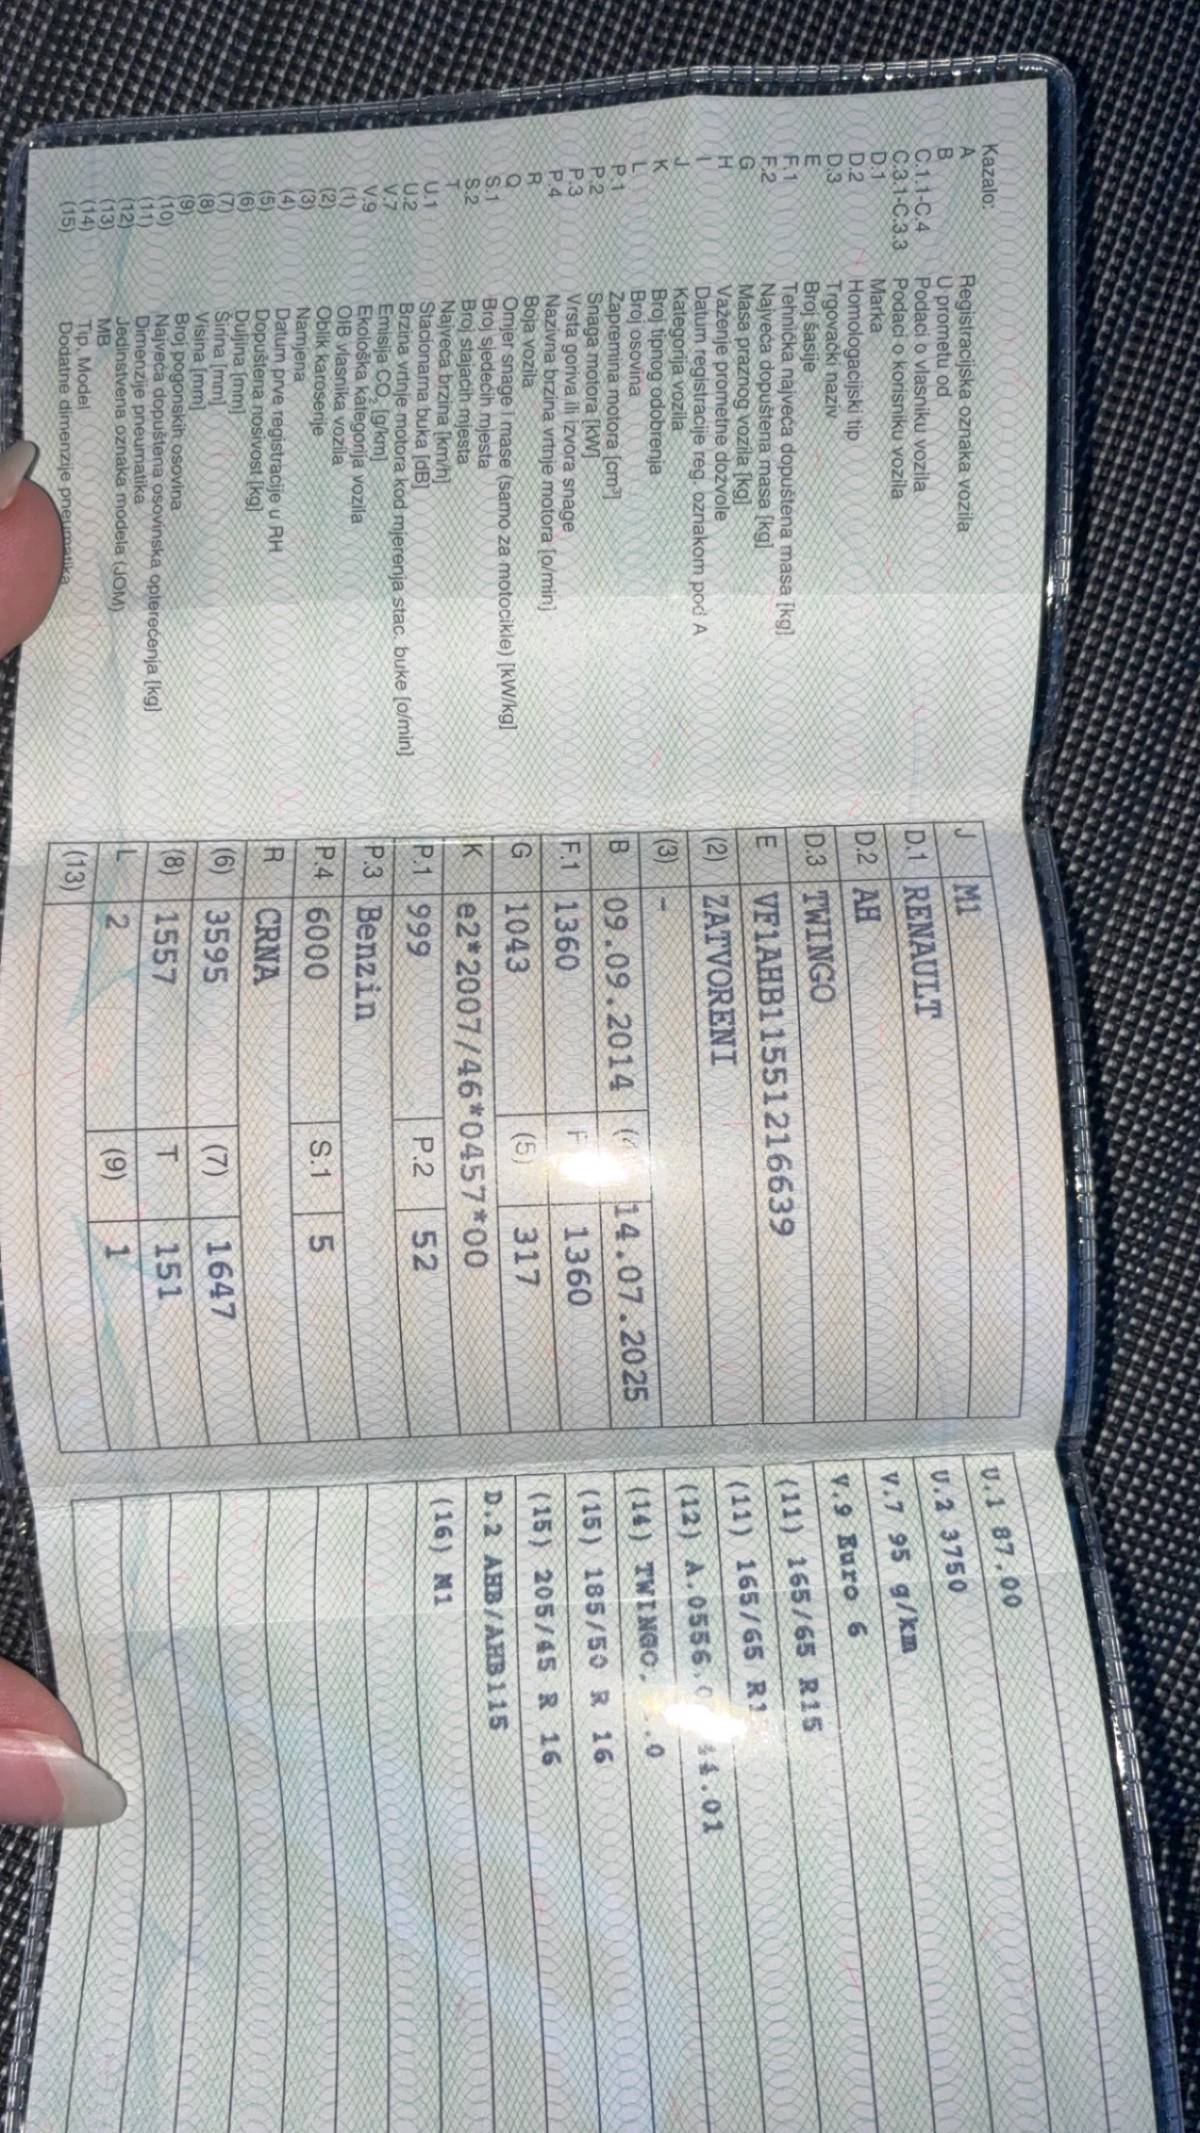 Kazalo:
A Registracijska oznaka vozila
B U prometu od
C.1.1-C.4 Podaci o vlasniku vozila
C.3.1-C.3.3 Podaci o korisniku vozila
D.1 Marka
D.2 Homologacijski tip
D.3 Trgovački naziv
E Broj šasije
F.1 Tehnička najveća dopuštena masa [kg]
F.2 Najveća dopuštena masa [kg]
G Masa praznog vozila [kg]
H Važenje prometne dozvole
I Datum registracije reg. oznakom pod A
J Kategorija vozila
K Broj tipnog odobrenja
L Broj osovina
P.1 Zapremina motora [cm³]
P.2 Snaga motora [kW]
P.3 Vrsta goriva ili izvora snage
P.4 Nazivna brzina vrtnje motora [o/min]
R Boja vozila
Q Omjer snage i mase (samo za motocikle) [kW/kg]
S.1 Broj sjedećih mjesta
S.2 Broj stajaćih mjesta
T Najveća brzina [km/h]
U.1 Stacionarna buka [dB]
U.2 Brzina vrtnje motora kod mjerenja stac. buke [o/min]
V.7 Emisija CO₂ [g/km]
V.9 Ekološka kategorija vozila
(1) OIB vlasnika vozila
(2) Oblik karoserije
(3) Namjena
(4) Datum prve registracije u RH
(5) Dopuštena nosivost [kg]
(6) Duljina [mm]
(7) Širina [mm]
(8) Visina [mm]
(9) Broj pogonskih osovina
(10) Najveća dopuštena osovinska opterećenja [kg]
(11) Dimenzije pneumatika
(12) Jedinstvena oznaka modela (JOM)
(13) MB
(14) Tip, Model
(15) Dodatne dimenzije pneumatika
J M1
D.1 RENAULT
D.2 AH
D.3 TWINGO
E VF1AHB11551216639
(2) ZATVORENI
(3) -
B 09.09.2014 14.07.2025
F.1 1360 1360
G 1043 (5) 317
K e2*2007/46*0457*00
P.1 999 P.2 52
P.3 Benzin
P.4 6000 S.1 5
R CRNA
(6) 3595 (7) 1647
(8) 1557 T 151
L 2 (9) 1
(13)
U.1 87.00
U.2 3750
V.7 95 g/km
V.9 Euro 6
(11) 165/65 R15
(11) 165/65
(12)
(14)
(15) 185/50 R 16
(15) 205/45 R 16
D.2 AHB/AHB115
(16) M1